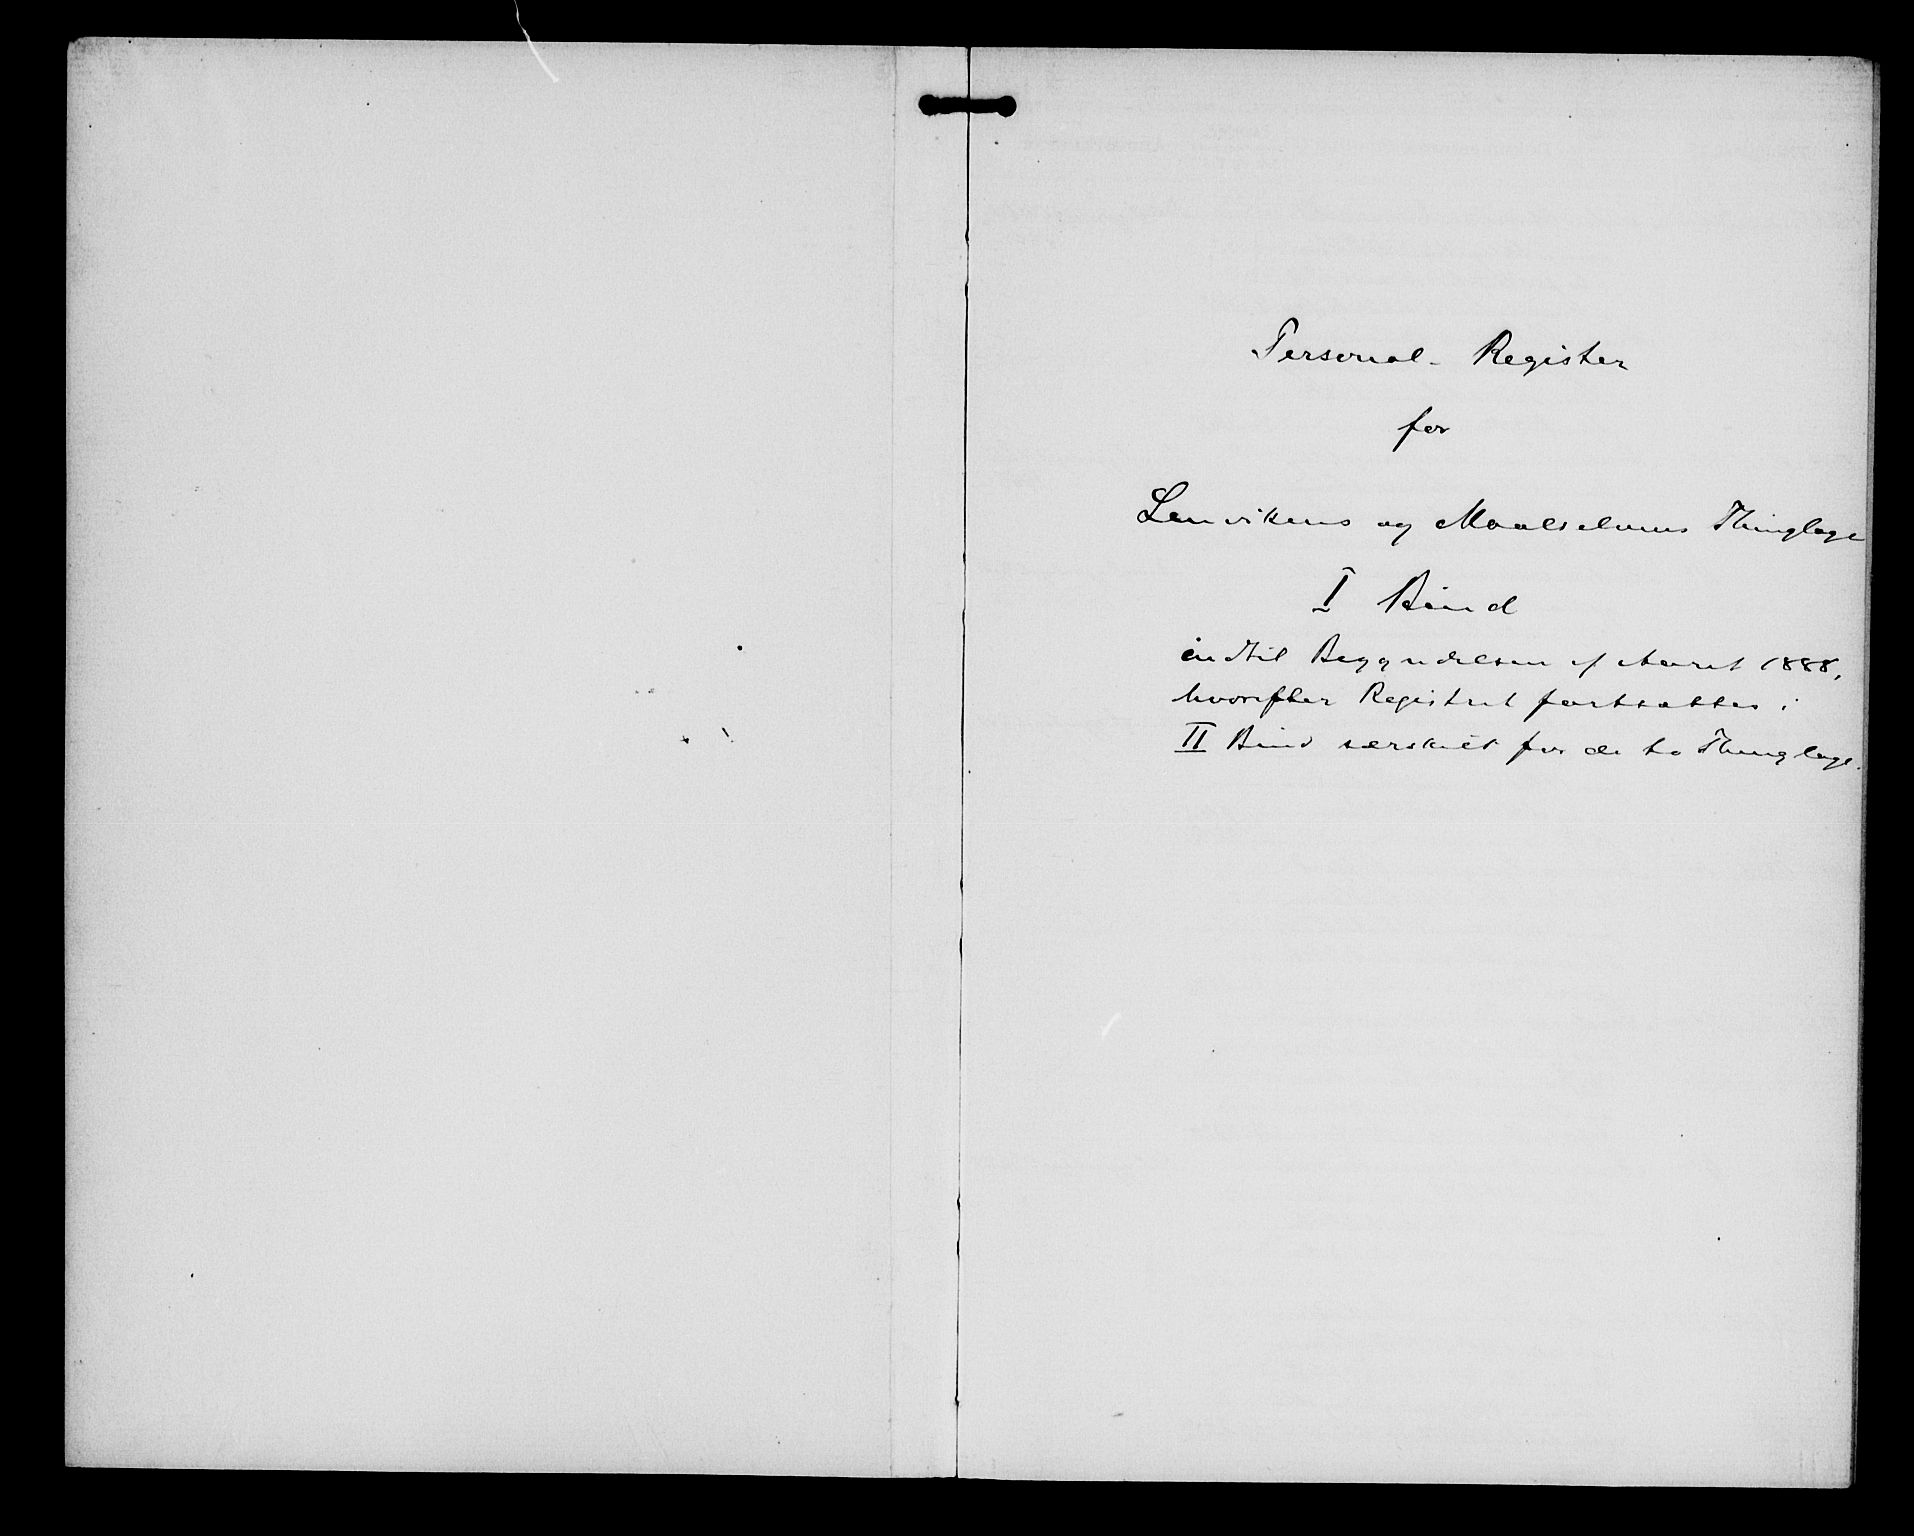 Personal-Register
for
Lenvikens og Maalselvens Thinglage
I Bind
indtil Begyndelsen af Aaret 1888,
hvorefter Registret fortsættes i
II Bind særskilt for de to Thinglage.